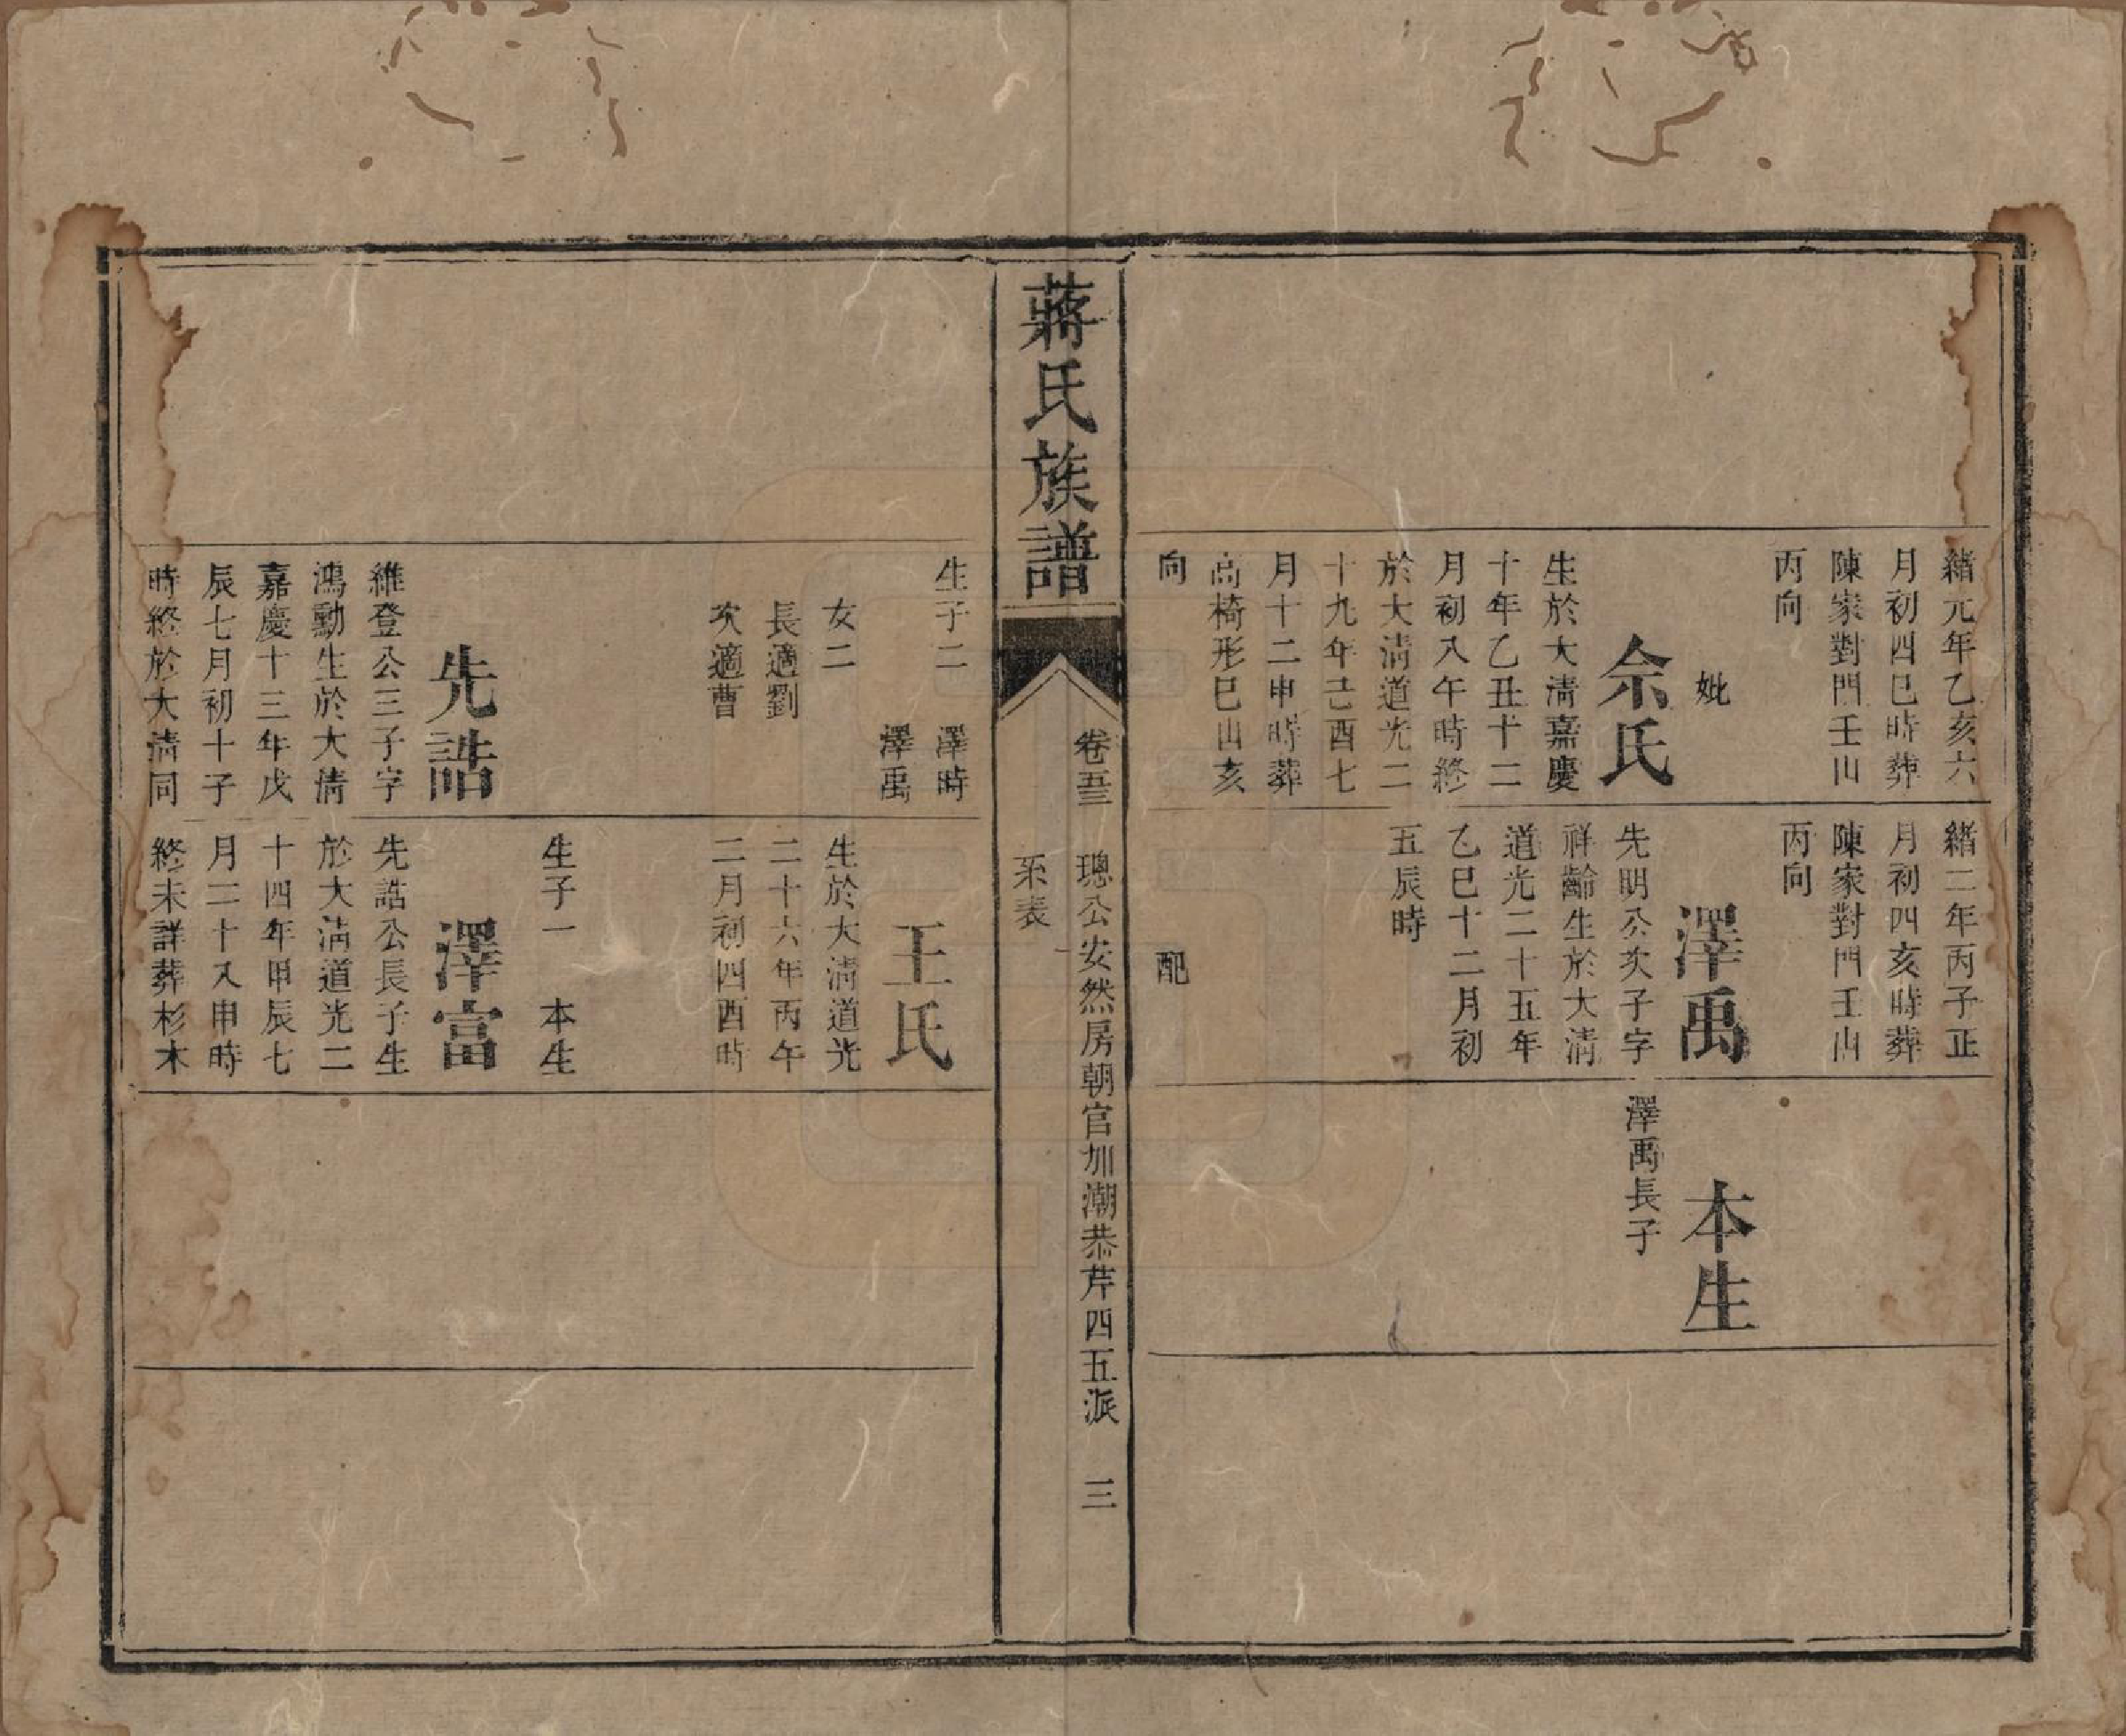 緒元年乙亥六
月初四巳時葬
陳家對門壬山
丙向
妣
佘氏
生於大淸嘉慶
十年乙丑十二
月初八午時終
於大淸道光二
十九年己酉七
月十二申時葬
高椅形巳山亥
向
緒二年丙子正
月初四亥時葬
陳家對門壬山
丙向
澤禹
先明公次子字
祥齡生於大淸
道光二十五年
乙巳十二月初
五辰時
配
本生
澤禹長子
蔣氏族譜
卷五三
璁公安然房朝官加潮恭芹四五派
三
系表
生子二 澤時
澤禹
女二
長適劉
次適曹
先誥
維登公三子字
鴻勳生於大淸
嘉慶十三年戊
辰七月初十子
時終於大淸同
王氏
生於大淸道光
二十六年丙午
二月初四酉時
生子一 本生
澤富
先誥公長子生
於大淸道光二
十四年甲辰七
月二十八申時
終未詳葬杉木